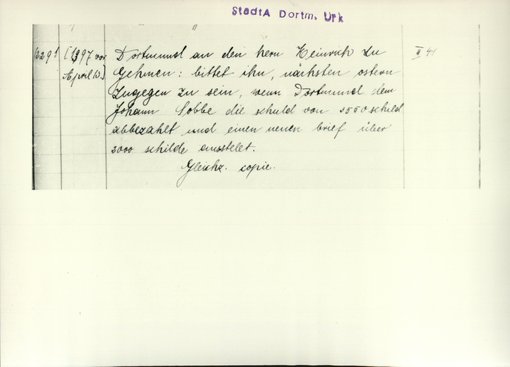 StadtA Dortm. Urk
1029¹ (1397 vor Dortmund an den hern Heinrich zu II 41
April 22.) Gehmen: bittet ihn, nächsten ostern
zugegen zu sein, wenn Dortmund dem
Johann Sobbe die schuld von 2550 schild
abbezahlt und einen neuen brief über
2000 schilde ausstelet.
Gleichz. copie.